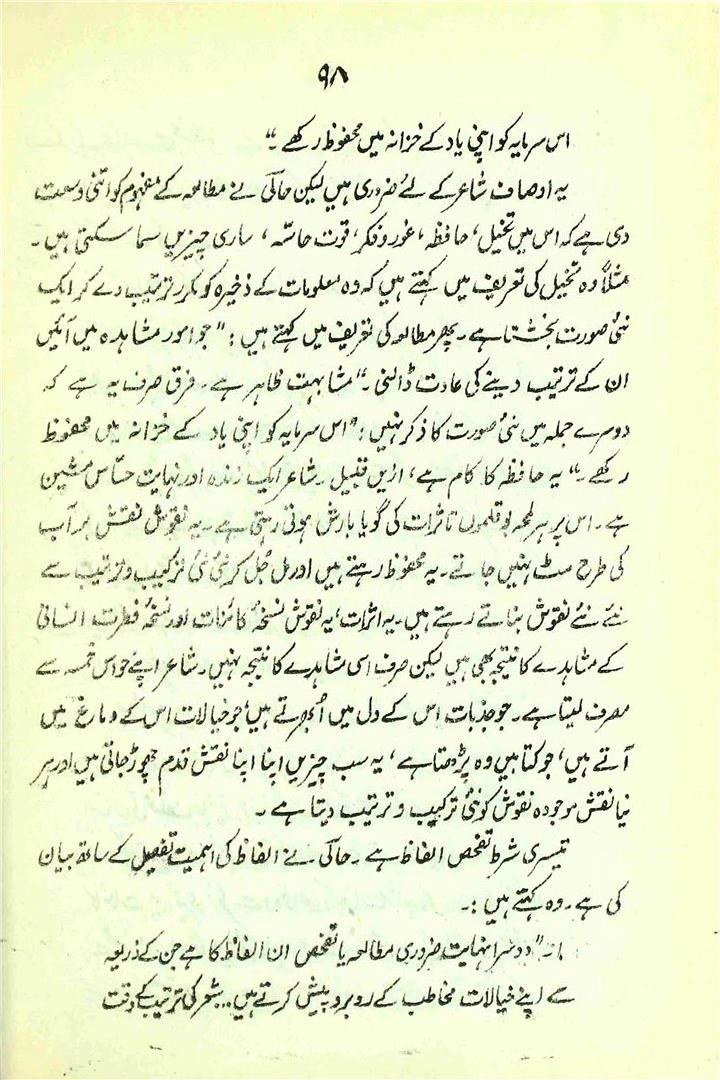 ۹۸
اس سرمایہ کو اپنی یاد کے خزانہ میں محفوظ رکھے۔“
یہ اوصاف شاعر کے لئے ضروری ہیں لیکن حالی نے مطالعہ کے مفہوم کو اتنی وسعت
دی ہے کہ اس میں تخیل، حافظہ، غور و فکر، قوت حاسّہ، ساری چیزیں سما سکتی ہیں۔
مثلاً وہ تخیل کی تعریف میں کہتے ہیں کہ وہ معلومات کے ذخیرہ کو مکرر ترتیب دے کر ایک
نئی صورت بخشتا ہے۔ پھر مطالعہ کی تعریف میں کہتے ہیں : ”جو امور مشاہدہ میں آئیں
ان کے ترتیب دینے کی عادت ڈالنی۔“ مشابہت ظاہر ہے۔ فرق صرف یہ ہے کہ
دوسرے جملہ میں نئی صورت کا ذکر نہیں : ”اس سرمایہ کو اپنی یاد کے خزانہ میں محفوظ
رکھے۔“ یہ حافظہ کا کام ہے، ازیں قبیل۔ شاعر ایک زندہ اور نہایت حسّاس مشین
ہے۔ اس پر ہر لمحہ بوقلموں تاثرات کی گویا بارش ہوتی رہتی ہے۔ یہ نقوش نقش بر آب
کی طرح مٹ نہیں جاتے۔ یہ محفوظ رہتے ہیں اور مل جُل کر نئی نئی ترکیب و ترتیب سے
نئے نئے نقوش بناتے رہتے ہیں۔ یہ اثرات، یہ نقوش نسخۂ کائنات اور نسخۂ فطرت انسانی
کے مشاہدے کا نتیجہ بھی ہیں لیکن صرف اسی مشاہدے کا نتیجہ نہیں۔ شاعر اپنے حواس خمسہ سے
مصرف لیتا ہے۔ جو جذبات اس کے دل میں اُبھرتے ہیں، جو خیالات اس کے دماغ میں
آتے ہیں، جو کتابیں وہ پڑھتا ہے، یہ سب چیزیں اپنا اپنا نقش قدم چھوڑ جاتی ہیں اور ہر
نیا نقش موجودہ نقوش کو نئی ترکیب و ترتیب دیتا ہے۔
تیسری شرط تفحص الفاظ ہے۔ حالی نے الفاظ کی اہمیت تفصیل کے ساتھ بیان
کی ہے۔ وہ کہتے ہیں :۔
”دوسرا نہایت ضروری مطالعہ یا تفحص ان الفاظ کا ہے جن کے ذریعہ
سے اپنے خیالات مخاطب کے روبرو پیش کرتے ہیں.. شعر کی ترتیب کے وقت